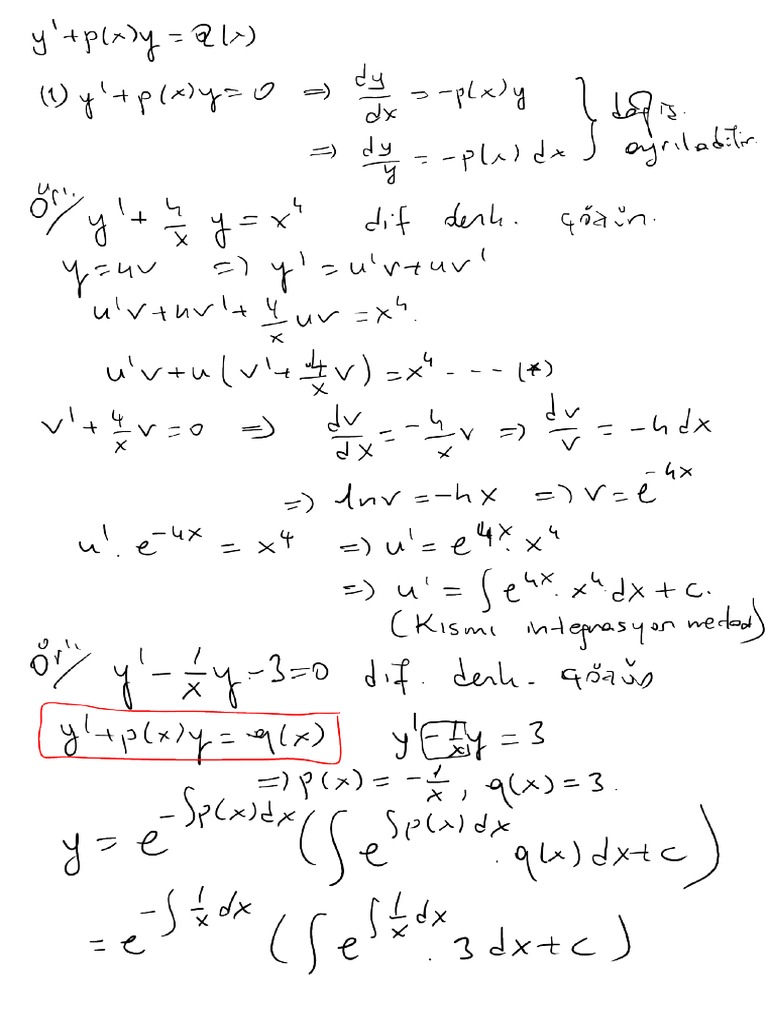 y' + p(x)y = Q(x)
(1) y' + p(x)y = 0 ⇒ dy/dx = -p(x)y } değiş.
⇒ dy/y = -p(x) dx } ayrılabilir.
Ör/ y' + 4/x y = x^4 dif denk. çözün.
y = uv ⇒ y' = u'v + uv'
u'v + uv' + 4/x uv = x^4.
u'v + u(v' + 4/x v) = x^4 --- (*)
v' + 4/x v = 0 ⇒ dv/dx = -4/x v ⇒ dv/v = -4 dx
⇒ lnv = -4x ⇒ v = e^{-4x}
u'. e^{-4x} = x^4 ⇒ u' = e^{4x}. x^4
⇒ u' = ∫ e^{4x}. x^4. dx + c.
(Kısmi integrasyon metod)
Ör/ y' - 1/x y - 3 = 0 dif. denk. çözün
y' + p(x)y = q(x) y' - 1/x y = 3
⇒ p(x) = -1/x, q(x) = 3.
y = e^{-∫p(x)dx} (∫ e^{∫p(x)dx}. q(x) dx + c)
= e^{-∫ 1/x dx} (∫ e^{∫ 1/x dx}. 3 dx + c)